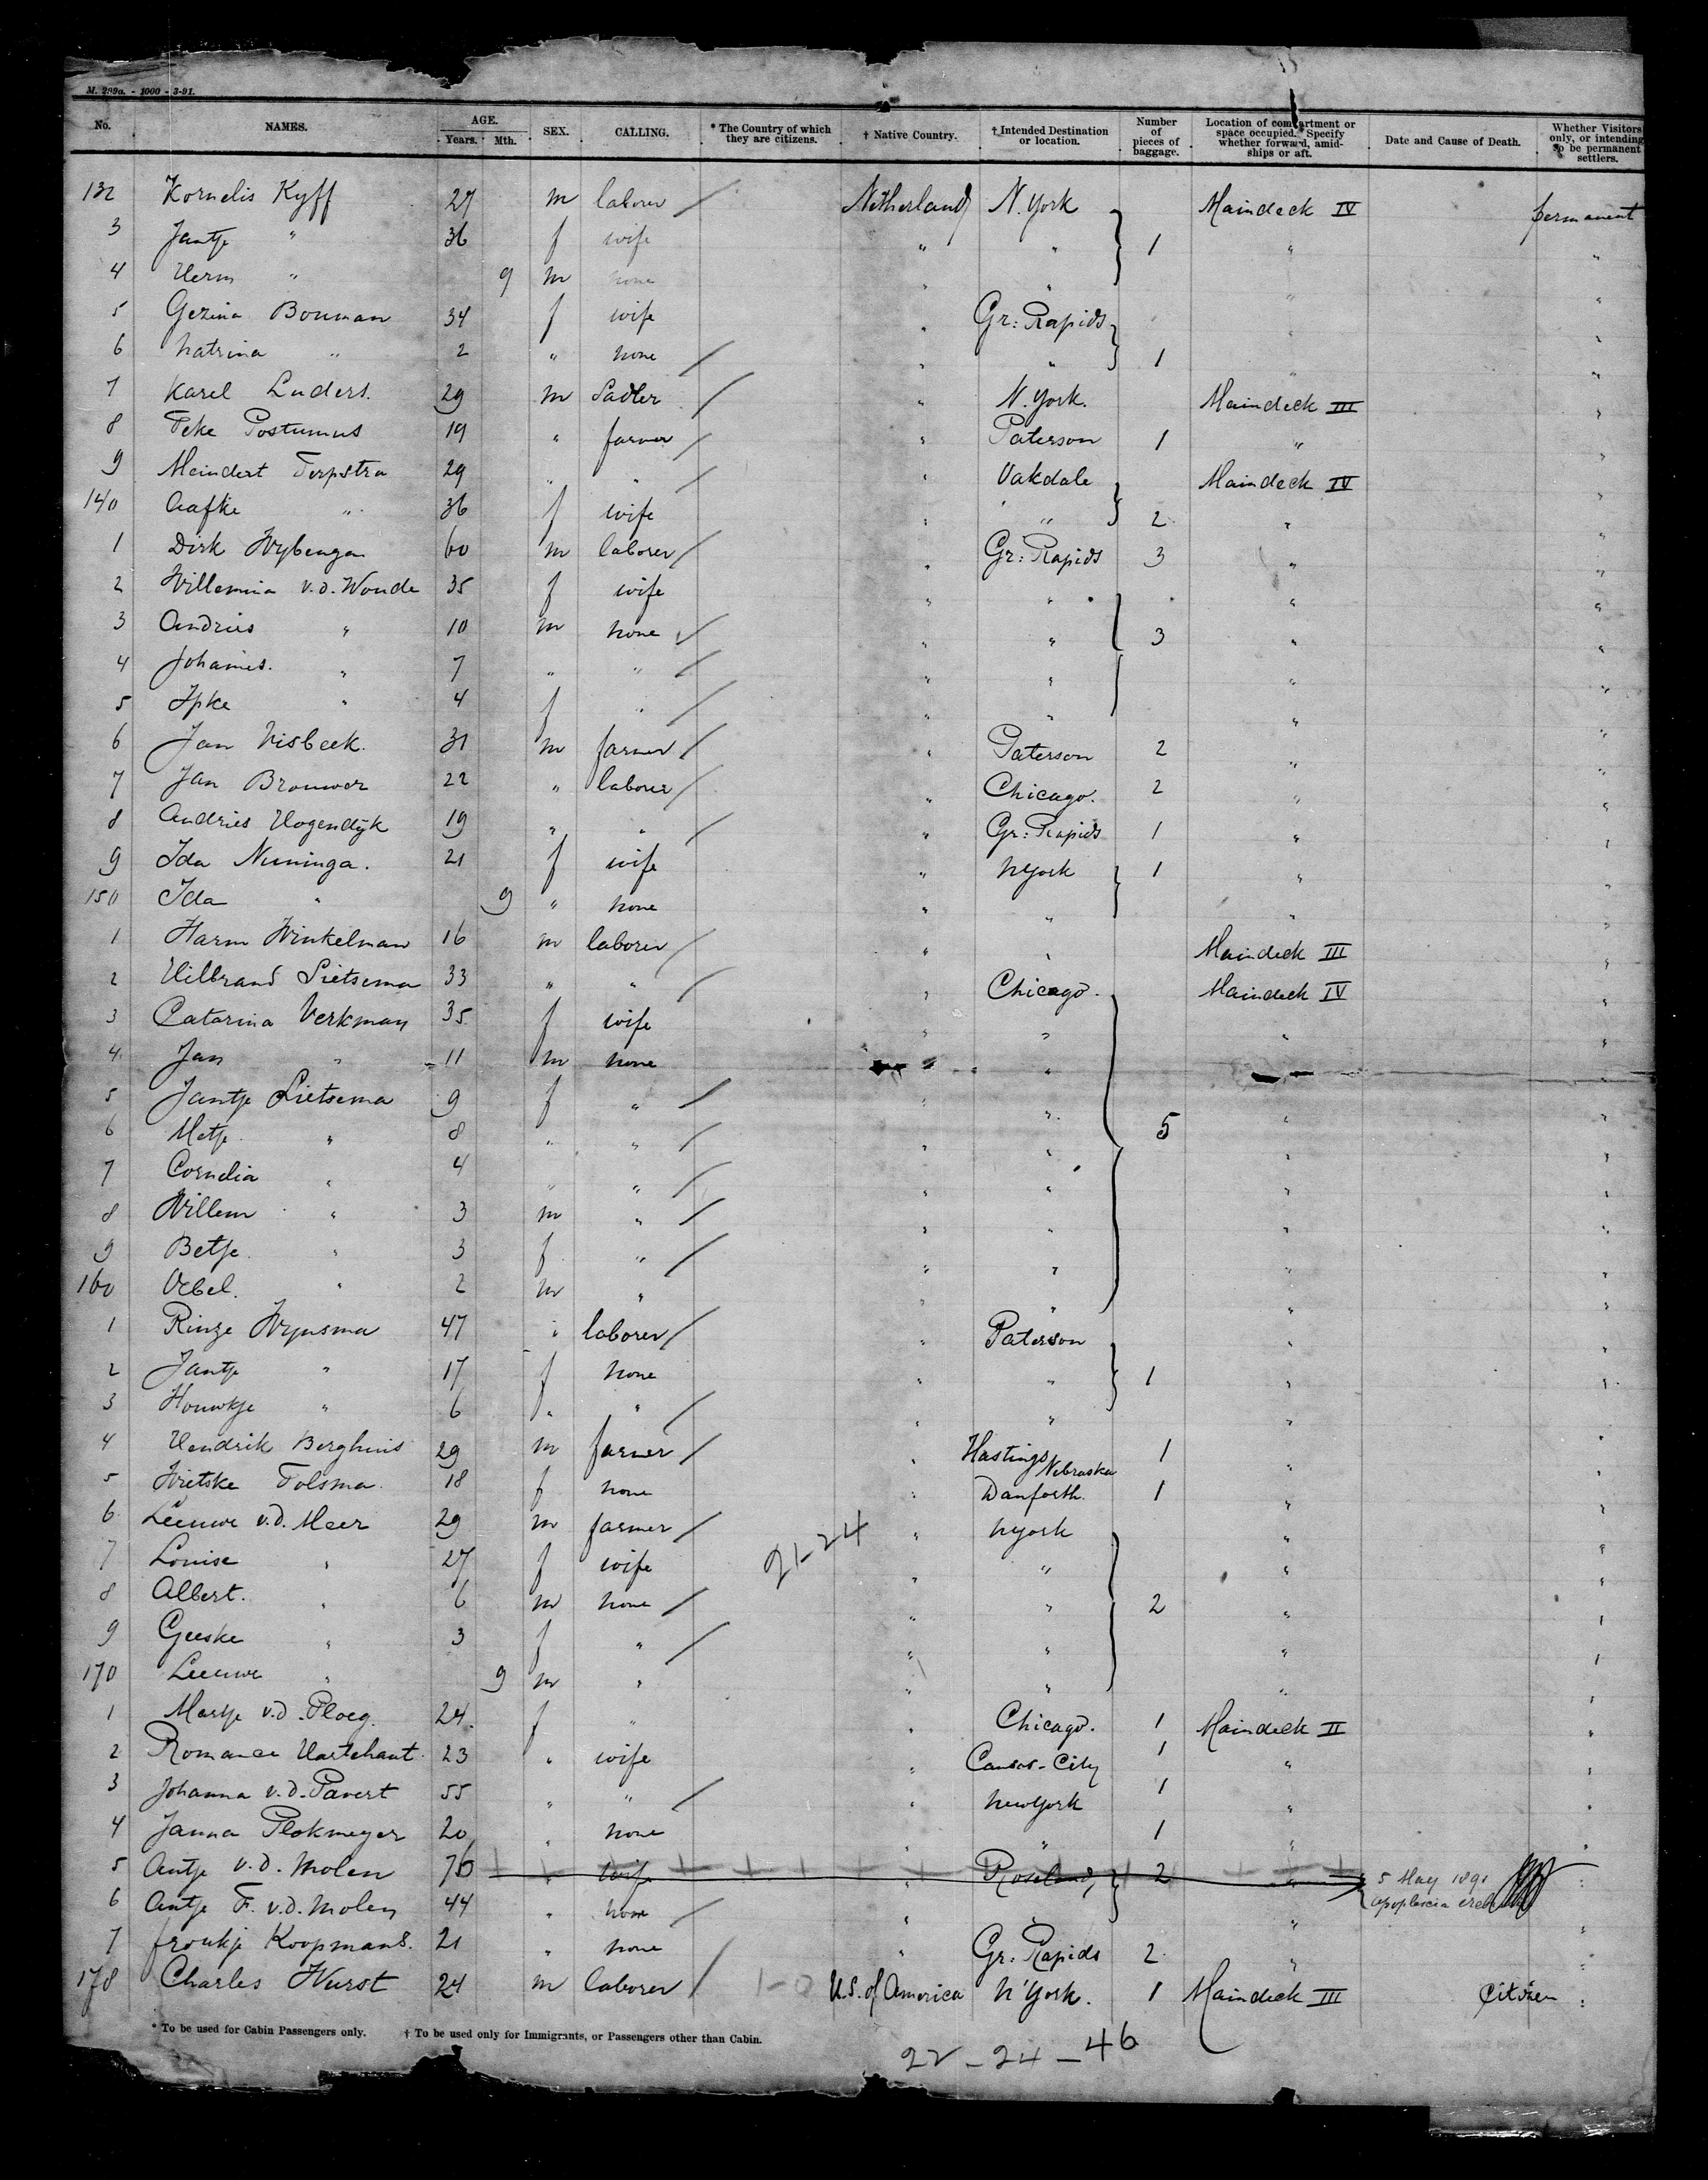 M. 289a. - 1000 - 3-91.
No. NAMES. AGE. Years. Mth. SEX. CALLING. * The Country of which they are citizens. † Native Country. † Intended Destination or location. Number of pieces of baggage. Location of compartment or space occupied. Specify whether forward, amidships or aft. Date and Cause of Death. Whether Visitors only, or intending to be permanent settlers.
132 Kornelis Kyff 27 m laborer / Netherland N. York Maindeck IV permanent
3 Jantje " 36 f wife " " 1 " "
4 Herm " 9 m none " " " "
5 Gezina Bouman 34 f wife " Gr: Rapids " "
6 Katrina " 2 " none / " " 1 " "
7 Karel Luders. 29 m Sadler / " N. York. Maindeck III "
8 Feke Postumus 19 " farmer / " Paterson 1 " "
9 Meindert Terpstra 29 " " / " Oakdale Maindeck IV "
140 Aafke " 36 f wife " " 2 " "
1 Dirk Wybenga 60 m laborer / " Gr: Rapids 3 " "
2 Willemina v.d. Woude 35 f wife " " " "
3 Andries " 10 m none / " " 3 " "
4 Johannes. " 7 " " / " " " "
5 Ipke " 4 f " / " " " "
6 Jan Visbeek. 31 m farmer / " Paterson 2 " "
7 Jan Brouwer 22 " laborer / " Chicago. 2 " "
8 Andries Hogendyk 19 " " / " Gr: Rapids 1 " "
9 Ida Nuninga. 21 f wife " NYork 1 " "
150 Ida " 9 " none " " " "
1 Harm Winkelman 16 m laborer / " " Maindeck III "
2 Hilbrand Sietsema 33 " " / " Chicago. Maindeck IV "
3 Catarina Verkman 35 f wife " " " "
4 Jan " 11 m none " " "
5 Jantje Sietsema 9 f " / " " " "
6 Metje " 8 " " / " " 5 " "
7 Cornelia " 4 " " / " " " "
8 Willem " 3 m " / " " " "
9 Betje " 3 f " / " " " "
160 Oebel. " 2 m " " " " "
1 Rinze Wynsma 47 " laborer / " Paterson " "
2 Jantje " 17 f none " " 1 " "
3 Houwkje " 6 " " / " " " "
4 Hendrik Berghuis 29 m farmer / " Hastings Nebraska 1 " "
5 Wietske Tolsma. 18 f none " Danforth. 1 " "
6 Leeuwe v.d. Meer 29 m farmer / " NYork " "
7 Louise " 27 f wife 21-24 " " " "
8 Albert. " 6 m none / " " 2 " "
9 Geeske " 3 f " / " " " "
170 Leeuwe " 9 m " " " " "
1 Martje v.d. Ploeg. 24. f " " Chicago. 1 Maindeck II "
2 Romance Hartehaut. 23 " wife " Cansas-City 1 " "
3 Johanna v.d. Pavert 55 " " / " NewYork 1 " "
4 Janna Plokmeyer 20 " none " " 1 " "
5 Antje v.d. Molen 76 " wife " Roseland, 2 " 5 May 1891 "
6 Antje F. v.d. Molen 44 " none / " " " apoplexia "
7 froukje Koopmans. 21 " none " Gr: Rapids 2 " "
178 Charles Hurst 24 m laborer / 1-0 U.S. of America N'York. 1 Maindeck III Citizen "
* To be used for Cabin Passengers only. † To be used only for Immigrants, or Passengers other than Cabin.
22 - 24 - 46